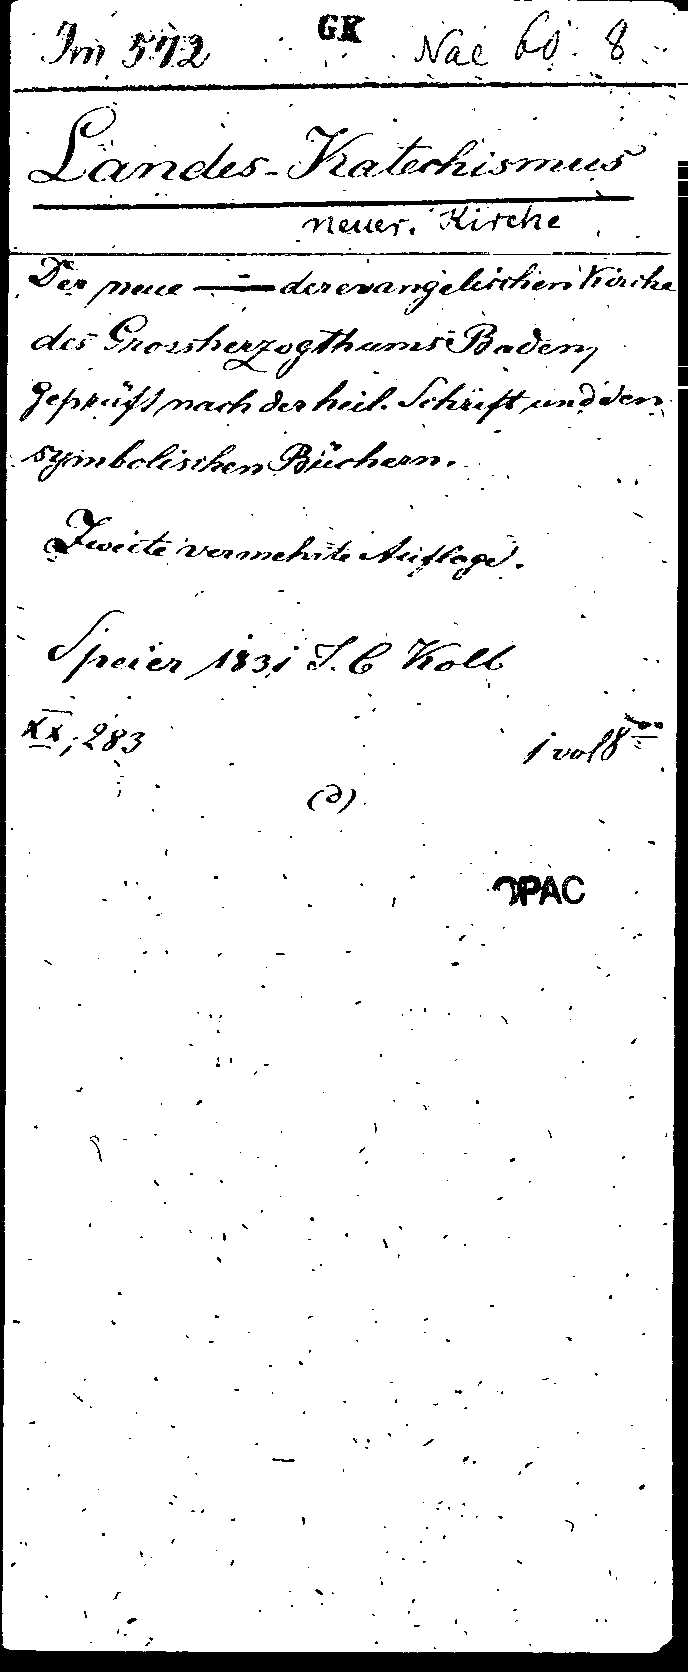 Im 572 GK Nae 60. 8
Landes-Katechismus
neuer. Kirche
Der neue — der evangelischen Kirche
des Grossherzogthums Baden,
geprüft nach der heil. Schrift und den
symbolischen Büchern.
Zweite vermehrte Auflage.
Speier 1831 J. C Kolb
XX, 283 1 vol 8vo
(d)
OPAC